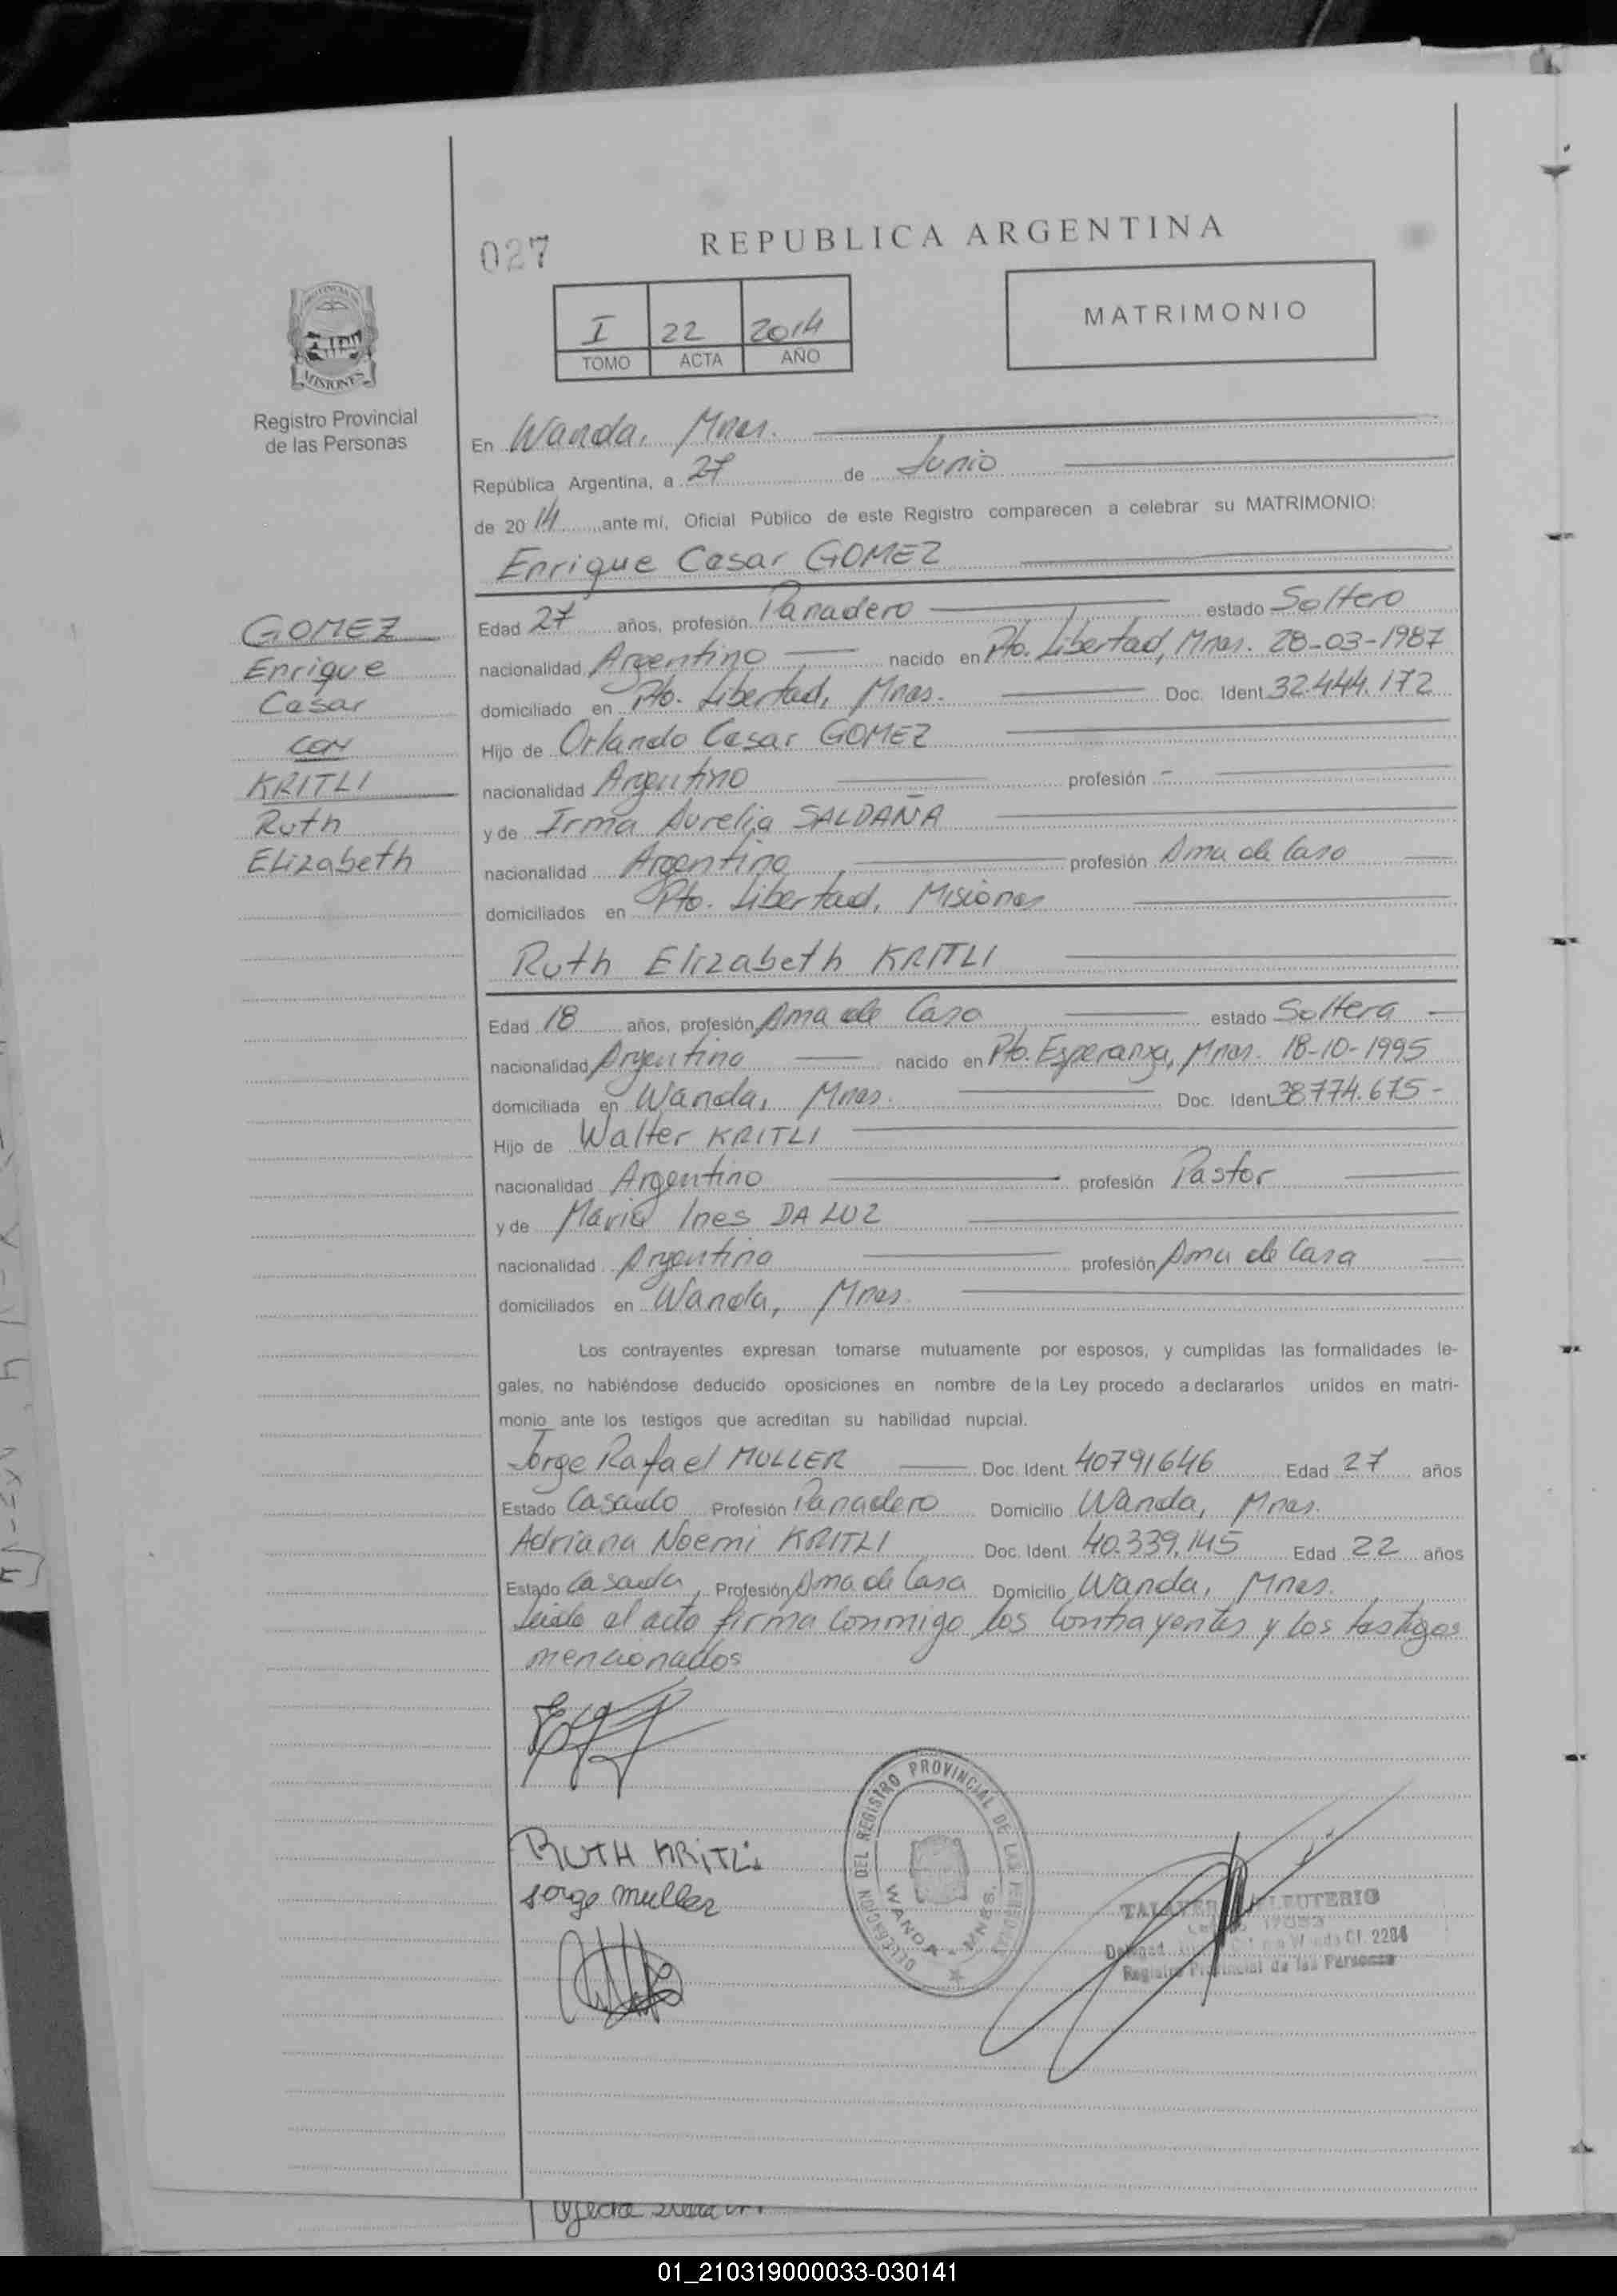 027
REPUBLICA ARGENTINA
I 22 2014
TOMO ACTA AÑO
MATRIMONIO
PROVINCIA DE
MISIONES
Registro Provincial
de las Personas
En Wanda, Mnes.
República Argentina, a 27 de Junio
de 2014 ante mí, Oficial Público de este Registro comparecen a celebrar su MATRIMONIO:
Enrique Cesar GOMEZ
GOMEZ
Enrique
Cesar
CON
KRITLI
Ruth
Elizabeth
Edad 27 años, profesión Panadero estado Soltero
nacionalidad Argentino nacido en Pto. Libertad, Mnes. 28-03-1987
domiciliado en Pto. Libertad, Mnes. Doc. Ident 32.444.172
Hijo de Orlando Cesar GOMEZ
nacionalidad Argentino profesión -
y de Irma Aurelia SALDAÑA
nacionalidad Argentina profesión Ama de Casa
domiciliados en Pto. Libertad, Misiones
Ruth Elizabeth KRITLI
Edad 18 años, profesión Ama de Casa estado Soltera
nacionalidad Argentina nacido en Pto. Esperanza, Mnes. 18-10-1995
domiciliada en Wanda, Mnes. Doc. Ident 38.774.675-
Hijo de Walter KRITLI
nacionalidad Argentino profesión Pastor
y de Maria Ines DA LUZ
nacionalidad Argentina profesión Ama de Casa
domiciliados en Wanda, Mnes.
Los contrayentes expresan tomarse mutuamente por esposos, y cumplidas las formalidades le-
gales, no habiéndose deducido oposiciones en nombre de la Ley procedo a declararlos unidos en matri-
monio ante los testigos que acreditan su habilidad nupcial.
Jorge Rafael MULLER Doc. Ident. 40791646 Edad 27 años
Estado Casado Profesión Panadero Domicilio Wanda, Mnes.
Adriana Noemi KRITLI Doc. Ident. 40.339.145 Edad 22 años
Estado Casada, Profesión Ama de Casa Domicilio Wanda, Mnes.
Leido el acto firma conmigo los contrayentes y los testigos
mencionados
RUTH KRITLi
Jorge muller
DELEGACION DEL REGISTRO PROVINCIAL DE LAS PERSONAS
WANDA - MNES.
ELEUTERIO
Cl. 2204
Registro Provincial de las Personas
01_210319000033-030141